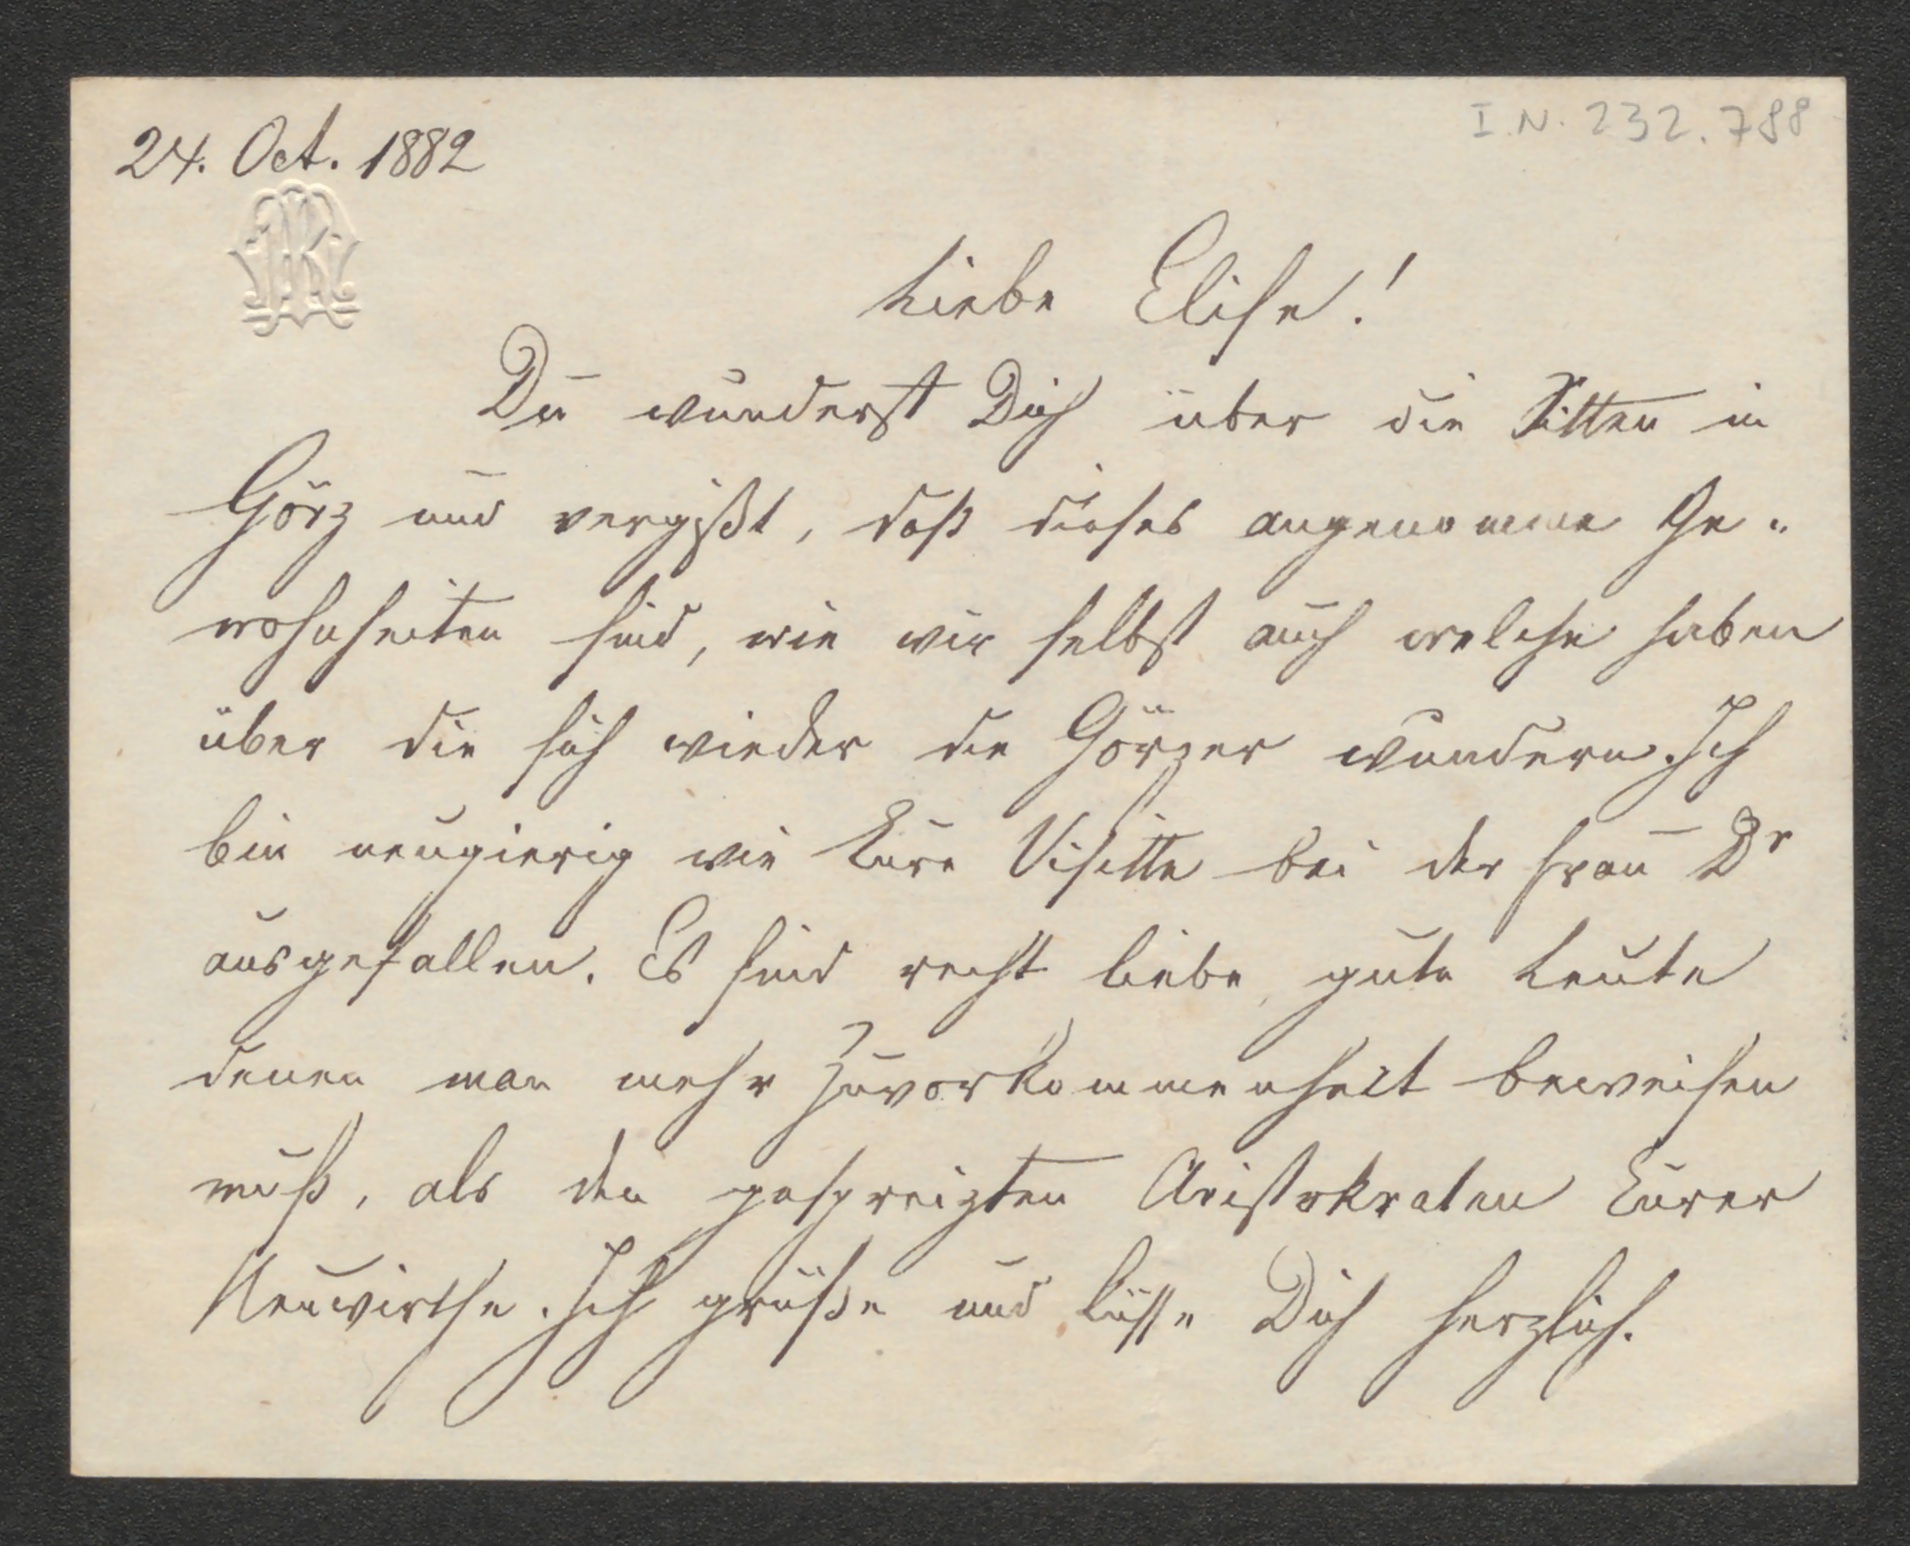 24. Oct. 1882
I.N. 232.788
Liebe Elise!
Du wunderst Dich über die Sitten in
Görz und vergißt, daß dieses angenomme Ge-
wohnheiten sind, wie wir selbst auch welche haben
über die sich wieder die Görzer wundern. Ich
bin neugierig wie Eure Visitte bei der Frau Dr
ausgefallen. Es sind recht liebe, gute Leute
denen man mehr Zuvorkommenheit beweisen
muß, als den gespreizten Aristokraten Eurer
Neuwirthe. Ich grüße und küsse Dich herzlich.